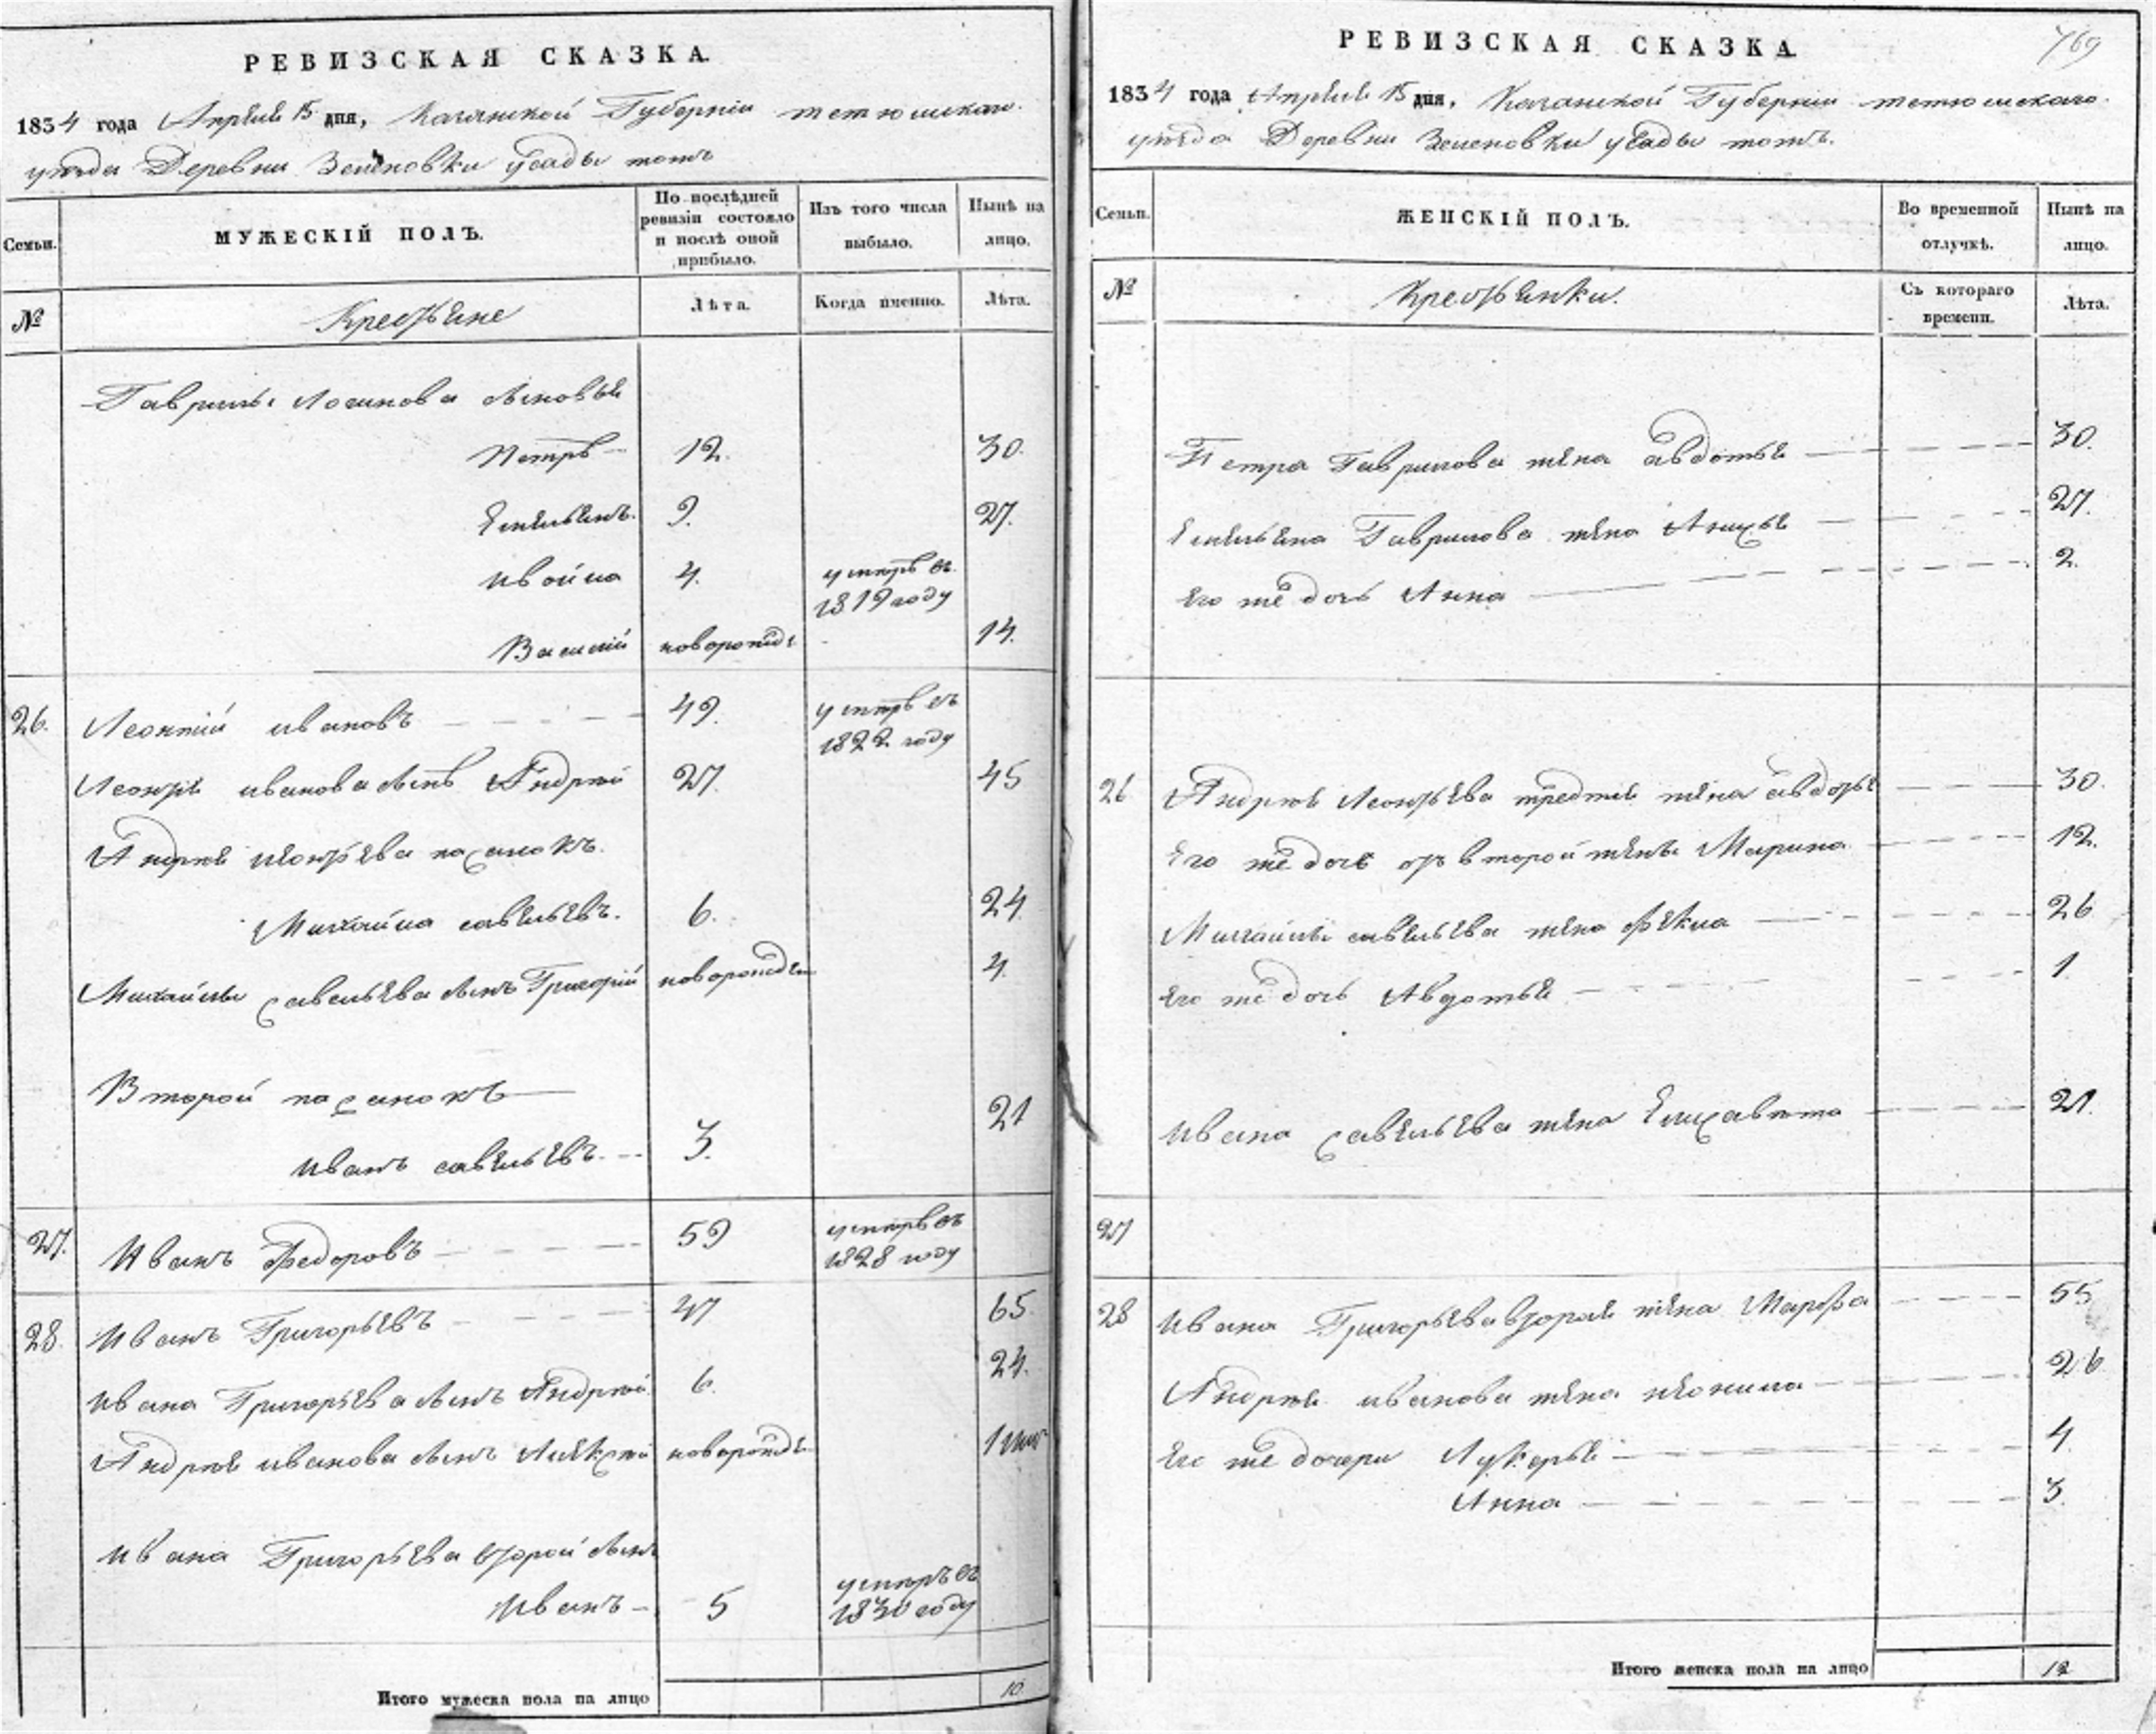 РЕВИЗСКАЯ СКАЗКА.
1834 года Апреля 15 дня, Казанской Губернии тетюшскаго
уезда Деревни Зеленовки усады тожъ
Семьи. МУЖЕСКІЙ ПОЛЪ. По послѣдней ревизіи состояло и послѣ оной прибыло. Изъ того числа выбыло. Нынѣ на лицо.
№ Крестьяне Лѣта. Когда именно. Лѣта.
Гаврилы Логинова сыновья
Петръ 12. 30.
Емельянъ. 9. 27.
Ивойла 4. умеръ въ 1819 году
Василий новорожде 14.
26. Леонтий ивановъ 49. умеръ въ 1822 году
Леонтья иванова сынъ Андрей 27. 45
Андрея леонтьева пасынокъ.
Михайла савельевъ. 6. 24
Михайлы савельева сынъ Григорий новорожден 4.
Второй пасынокъ
иванъ савельевъ. 3. 21
27. Иванъ Федоровъ 59 умеръ въ 1828 году
28. Иванъ Григорьевъ 47 65.
ивана Григорьева сынъ Андрей 6. 24.
Андрея иванова сынъ Алексей новорожде
ивана Григорьева второй сынъ
иванъ 5 умеръ въ 1830 году
Итого мужеска пола на лицо 10
РЕВИЗСКАЯ СКАЗКА. 769
1834 года Апреля 15 дня, Казанской Губернии тетюшскаго
уезда Деревни Зеленовки усады тожъ.
Семьи. ЖЕНСКІЙ ПОЛЪ. Во временной отлучкѣ. Нынѣ на лицо.
№ Крестьянки. Съ котораго времени. Лѣта.
Петра Гаврилова жена авдотья 30.
Емельяна Гаврилова жена 27.
Его же дочь Анна 2.
26 Андрея Леонтьева третья жена авдотья 30.
Его же дочь отъ второй жены Марина 12.
Михайлы савельева жена Фекла 26
Его же дочь Авдотья 1.
ивана савельева жена Елизавета 21.
27
28 ивана Григорьева вторая жена Марфа 55
Андрея иванова жена неонила 26.
Его же дочери Лукерья 4.
Анна 3.
Итого женска пола на лицо 12